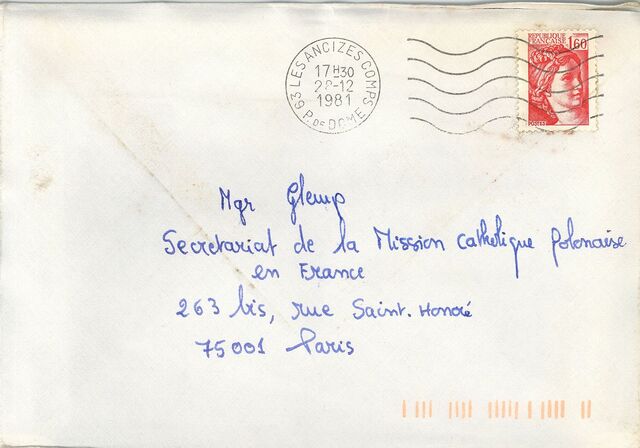 63 LES ANCIZES COMPS
17H30
28-12
1981
P. DE DOME
REPUBLIQUE
FRANCAISE
1,60
POSTES
Mgr Glemp
Secretariat de la Mission Catholique Polonaise
en France
263 bis, rue Saint-Honoré
75001 Paris